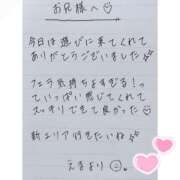 お兄様へ
今日は遊びに来てくれて
ありがとうございました
フェラ気持ちよすぎる！って
っていっぱい感じてくれて
スッキリできて良かった
新エリア行きたいね
えまより